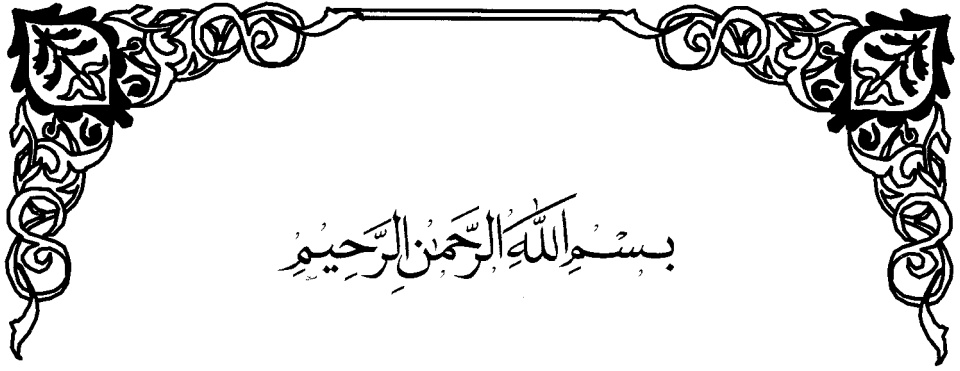 بسم اللهِ الرَّحمٰن الرَّحِيمِ